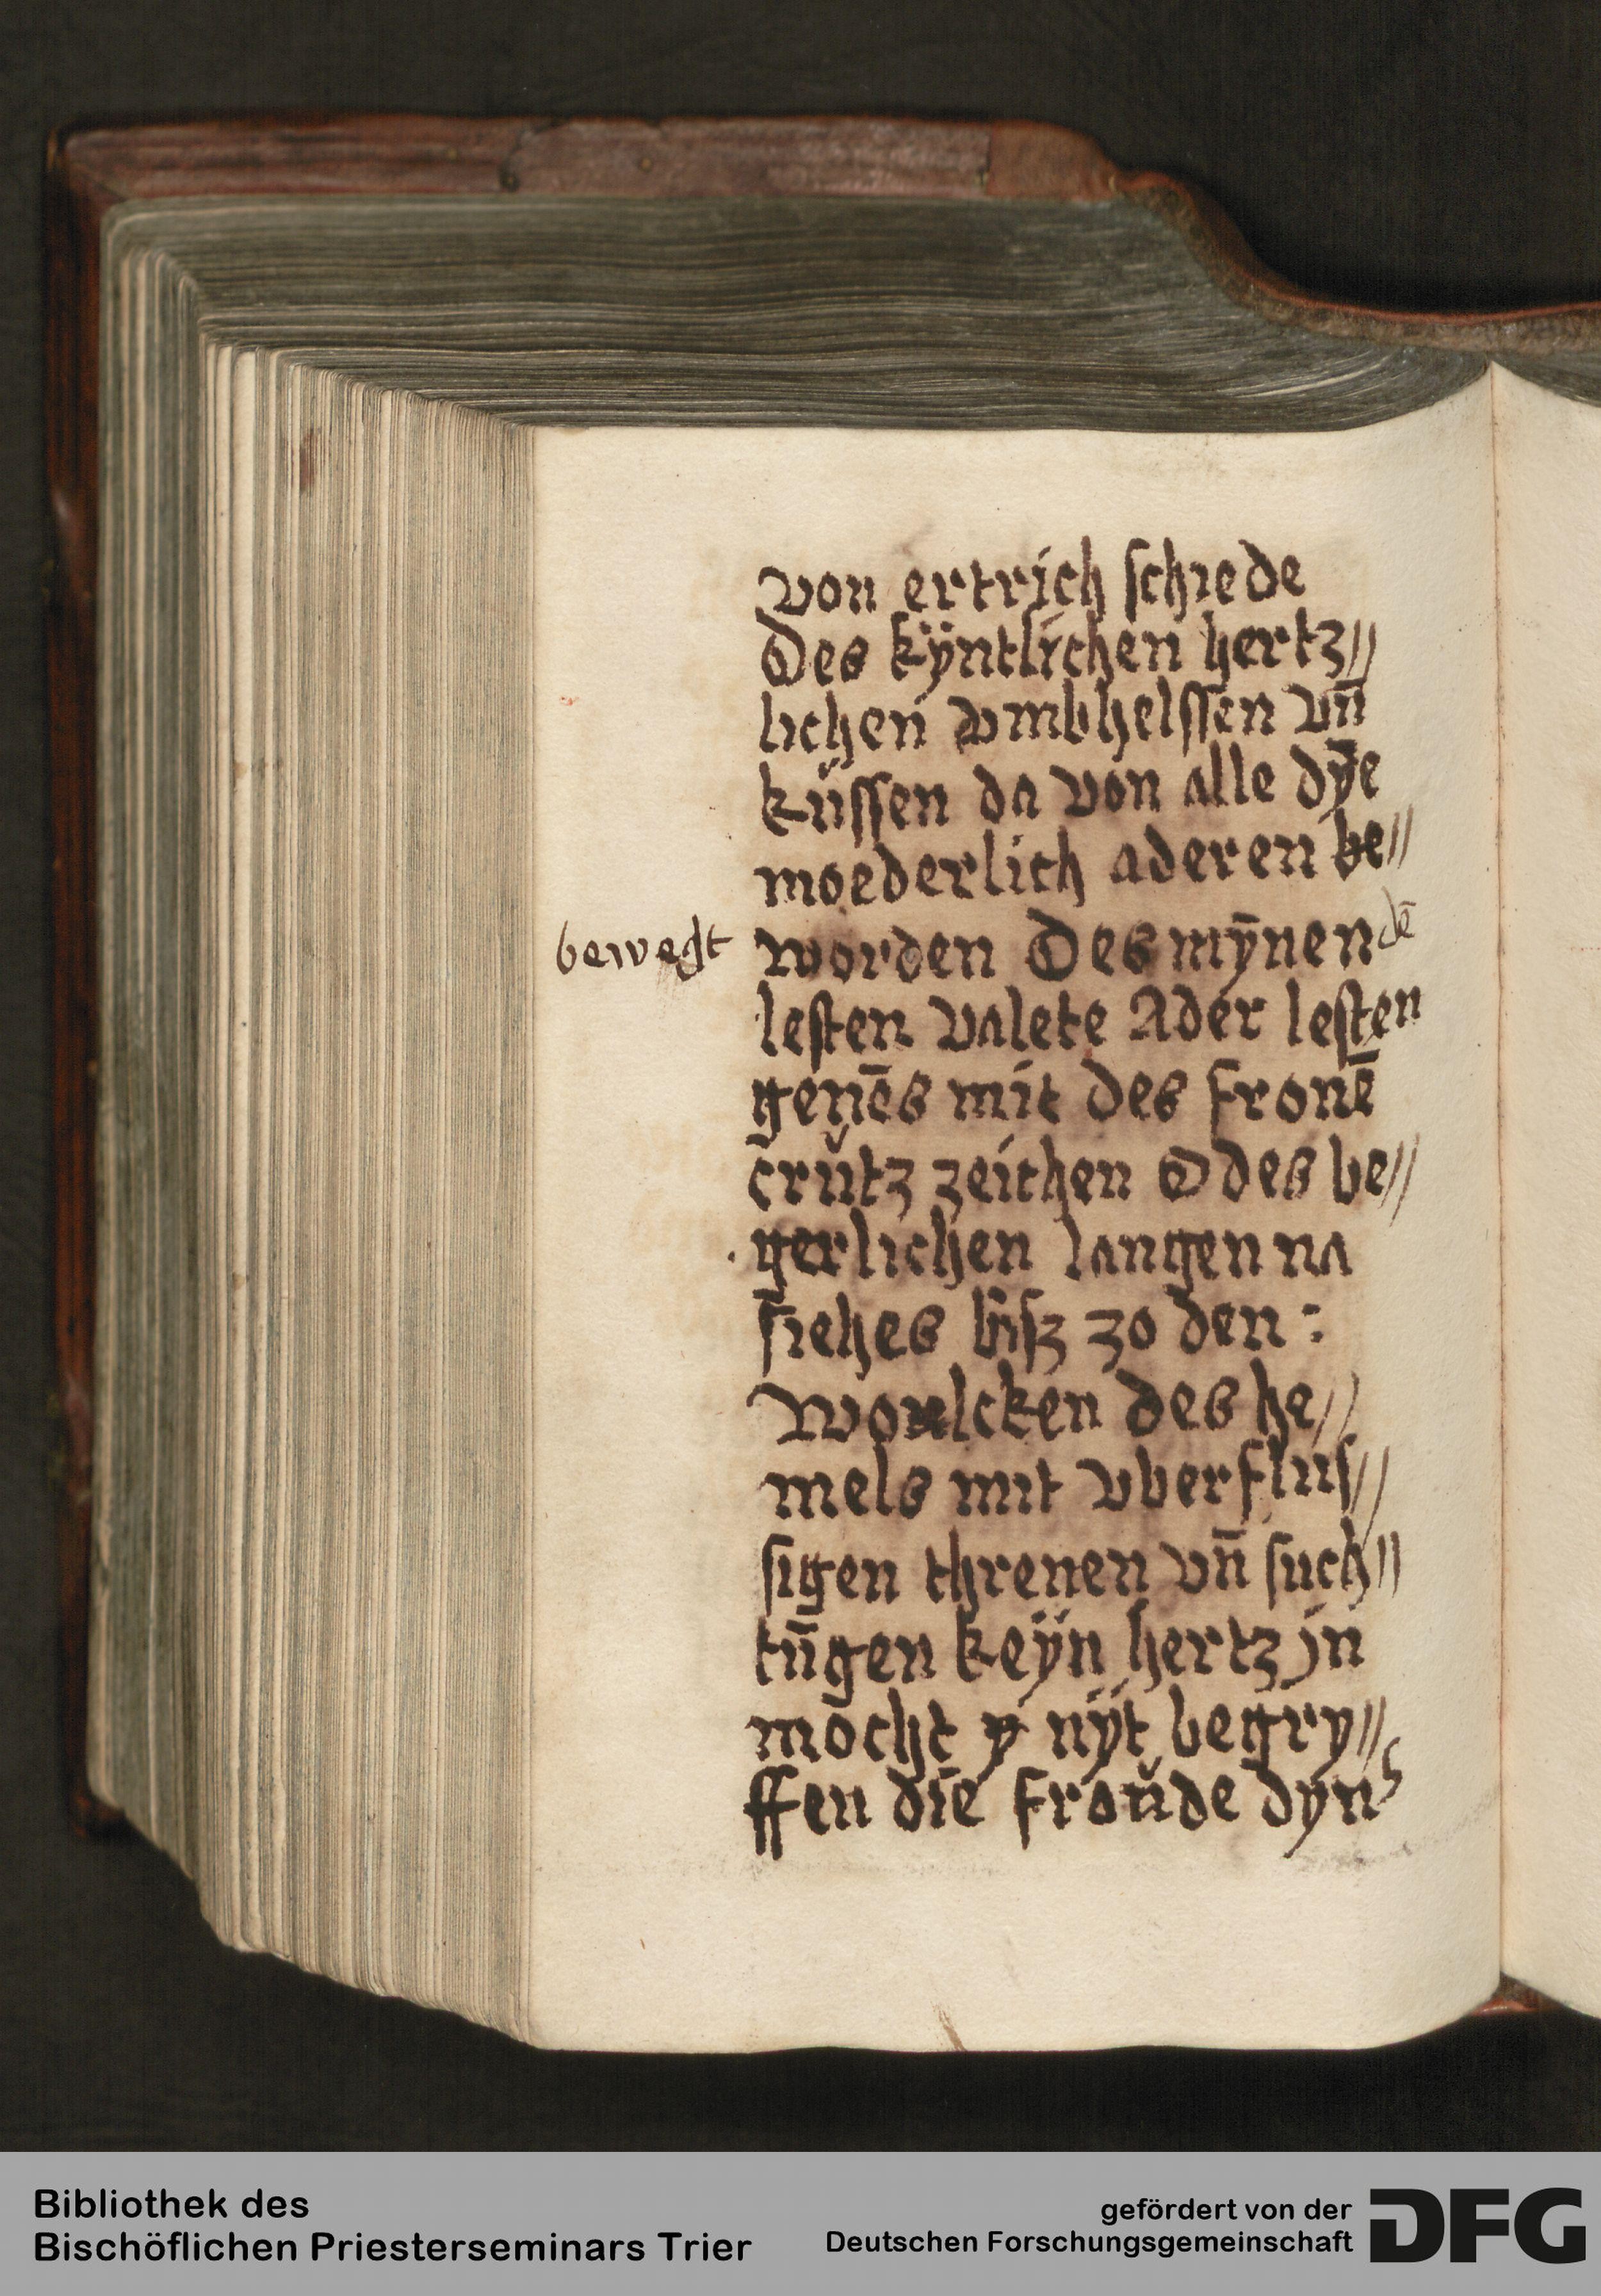 von ertrich schiede
Des kÿntlichen hertz//
lichen vmbhelssen vn̄
küssen da von alle dÿe
moederlich aderen be//
bewegt worden Des mȳnen dē
lesten valete Ader lesten
genēs mit des fronē
crŭtz zeichen O des be//
gerlichen langen na
siehes bisz zo den :
Wonlcken des he//
mels mit vberflus//
sigen threnen vn̄ such//
tūgen keÿn hertz jn
mocht y nÿt begry//
ffen die fraŭde dyns
Bibliothek des
Bischöflichen Priesterseminars Trier
gefördert von der
Deutschen Forschungsgemeinschaft
DFG